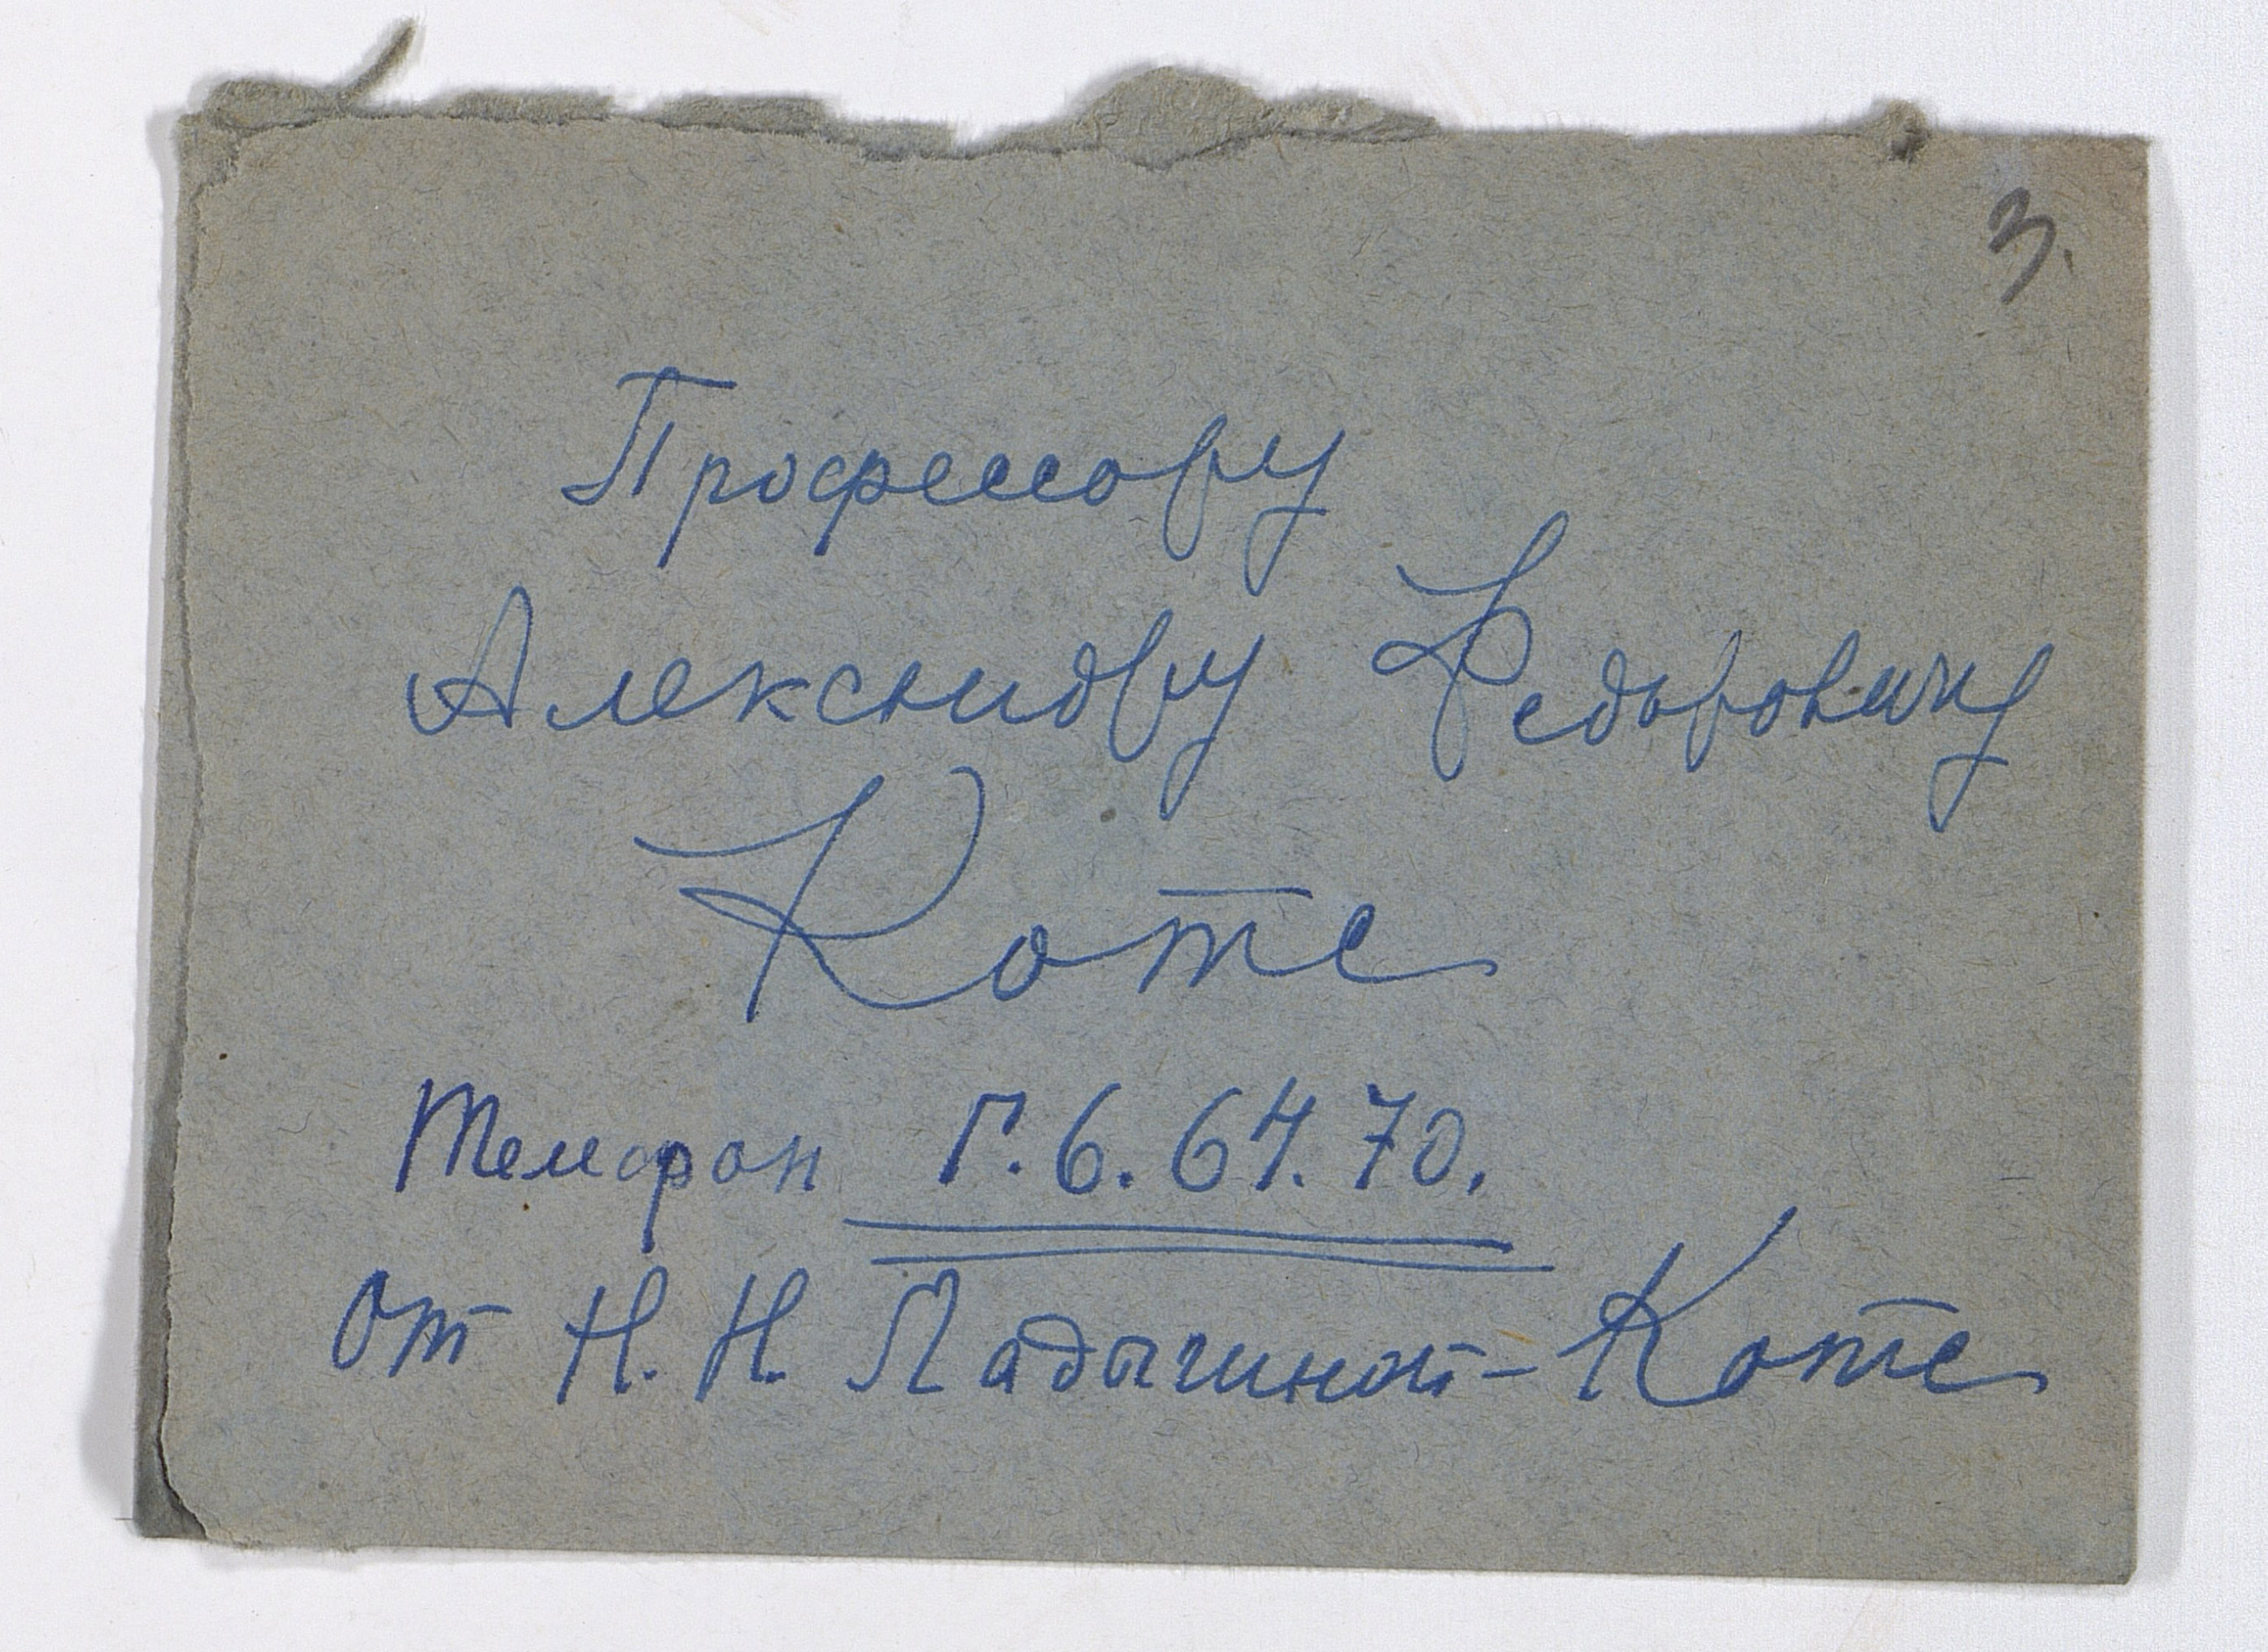 3.
Профессору
Александру Федоровичу
Котс
Телефон Г. 6. 64. 70.
От Н. Н. Ладыгиной-Котс